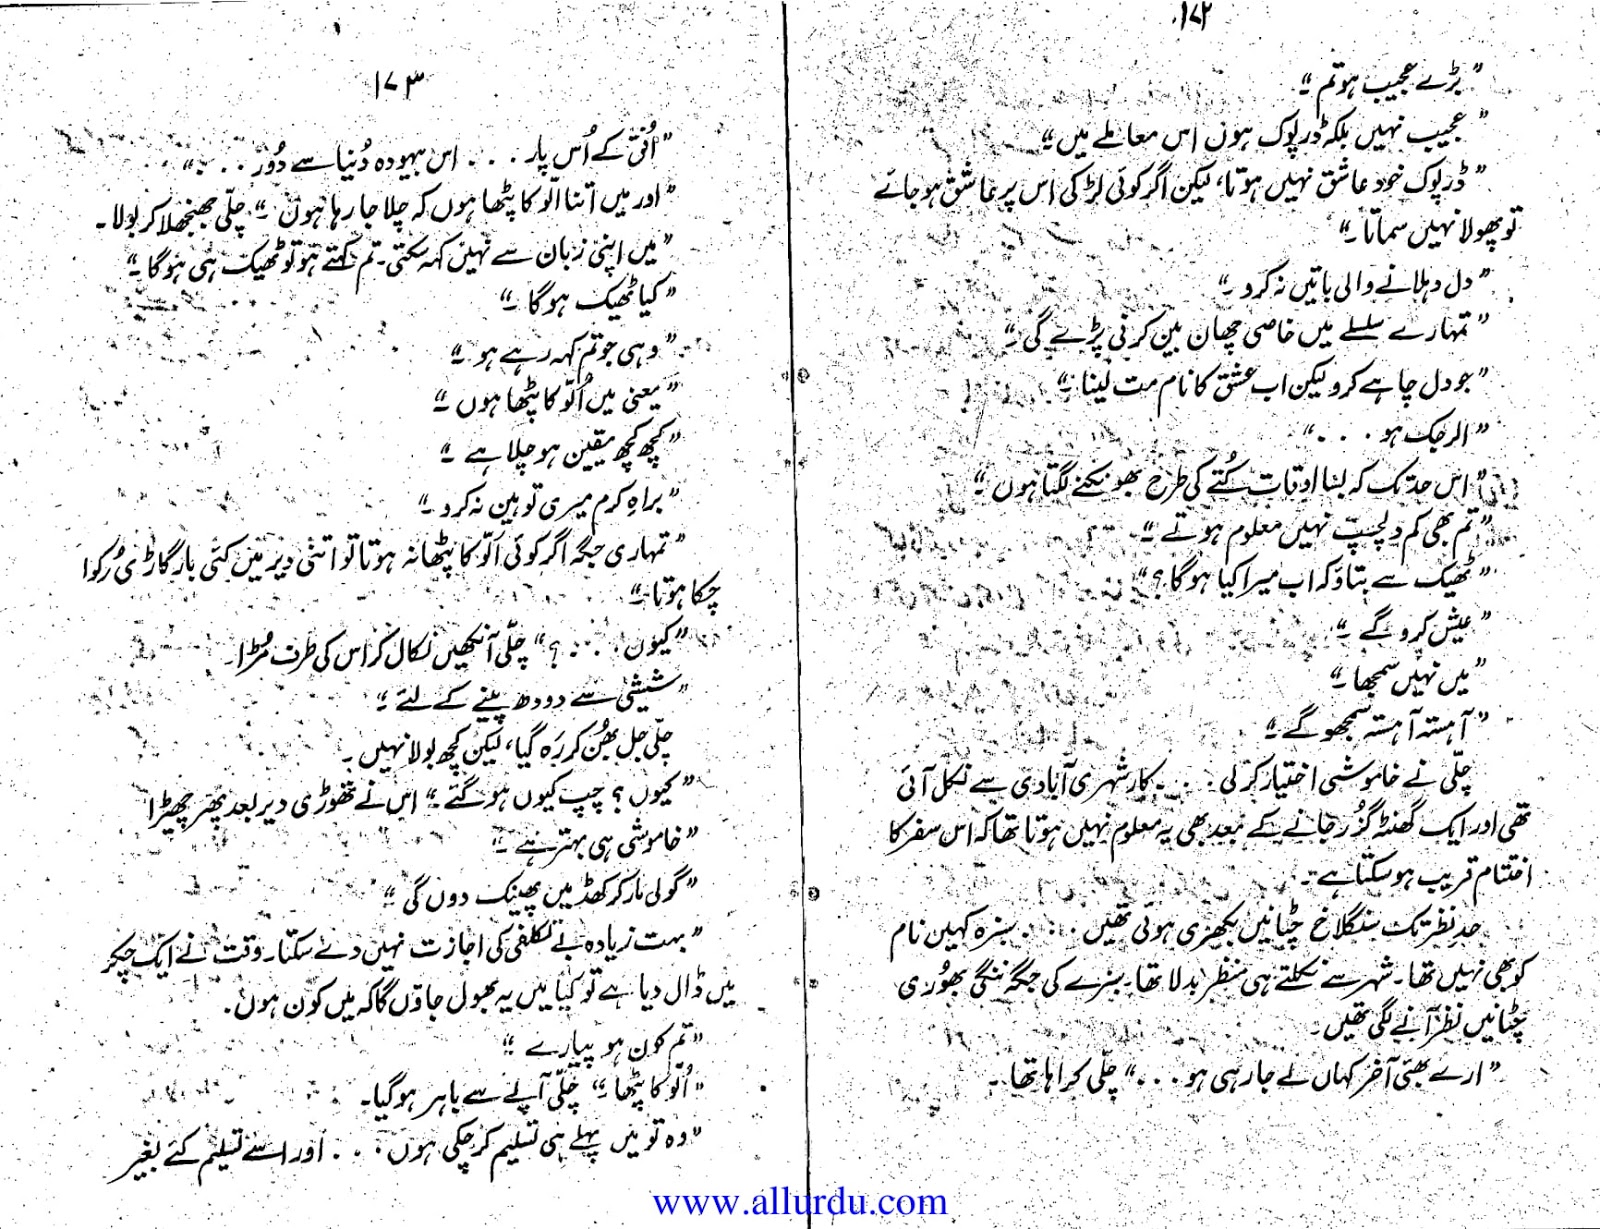 ۱۷۲
"بڑے عجیب ہو تم۔"
"عجیب نہیں بلکہ ڈرپوک ہوں اس معاملے میں۔"
"ڈرپوک خود عاشق نہیں ہوتا، لیکن اگر کوئی لڑکی اس پر عاشق ہو جائے
تو پھولا نہیں سماتا۔"
"دل دہلانے والی باتیں نہ کرو۔"
"تمہارے سلسلے میں خاصی چھان بین کرنی پڑے گی۔"
"جو دل چاہے کرو لیکن اب عشق کا نام مت لینا۔"
"الرجک ہو . . . ."
"اس حد تک کہ بسا اوقات کُتے کی طرح بھونکنے لگتا ہوں۔"
"تم بھی کم دلچسپ نہیں معلوم ہوتے۔"
"ٹھیک سے بتاؤ کہ اب میرا کیا ہوگا؟"
"عیش کرو گے۔"
"میں نہیں سمجھا۔"
"آہستہ آہستہ سمجھو گے۔"
چلّی نے خاموشی اختیار کر لی . . . . کار شہری آبادی سے نکل آئی
تھی اور ایک گھنٹہ گزر جانے کے بعد بھی یہ معلوم نہیں ہوتا تھا کہ اس سفر کا
اختتام قریب ہو سکتا ہے۔
حدِ نظر تک سنگلاخ چٹانیں بکھری ہوئی تھیں . . . . سبزہ کہیں نام
کو بھی نہیں تھا۔ شہر سے نکلتے ہی منظر بدلا تھا۔ سبزے کی جگہ ننگی بھُوری
چٹانیں نظر آنے لگی تھیں۔
"ارے بھئی آخر کہاں لے جا رہی ہو . . . ." چلّی کراہا تھا۔
۱۷۳
"اُفق کے اُس پار . . . . اس بیہودہ دُنیا سے دُور . . . ."
"اور میں اتنا الّو کا پٹھا ہوں کہ چلا جا رہا ہوں۔" چلّی جھنجھلا کر بولا۔
"میں اپنی زبان سے نہیں کہہ سکتی۔ تم کہتے ہو تو ٹھیک ہی ہوگا۔"
"کیا ٹھیک ہوگا۔"
"وہی جو تم کہہ رہے ہو۔"
"یعنی میں اُلّو کا پٹھا ہوں۔"
"کچھ کچھ یقین ہو چلا ہے۔"
"براہِ کرم میری توہین نہ کرو۔"
"تمہاری جگہ اگر کوئی اُلّو کا پٹھا نہ ہوتا تو اتنی دیر میں کئی بار گاڑی رُکوا
چکا ہوتا۔"
"کیوں . . . . ؟" چلّی آنکھیں نکال کر اس کی طرف مُڑا۔
"شیشی سے دودھ پینے کے لئے۔"
چلّی جل بھُن کر رہ گیا، لیکن کچھ بولا نہیں۔
"کیوں؟ چپ کیوں ہو گئے۔" اس نے تھوڑی دیر بعد پھر چھیڑا
"خاموشی ہی بہتر ہے۔"
"گولی مار کر کھڈ میں پھینک دوں گی۔"
"بہت زیادہ بے تکلفی کی اجازت نہیں دے سکتا۔ وقت نے ایک چکر
میں ڈال دیا ہے تو کیا میں یہ بھول جاؤں گا کہ میں کون ہوں۔
"تم کون ہو پیارے۔"
"اُلّو کا پٹھا۔" چلّی آپے سے باہر ہو گیا۔
"وہ تو میں پہلے ہی تسلیم کر چکی ہوں . . . . اور اسے تسلیم کئے بغیر
www.allurdu.com